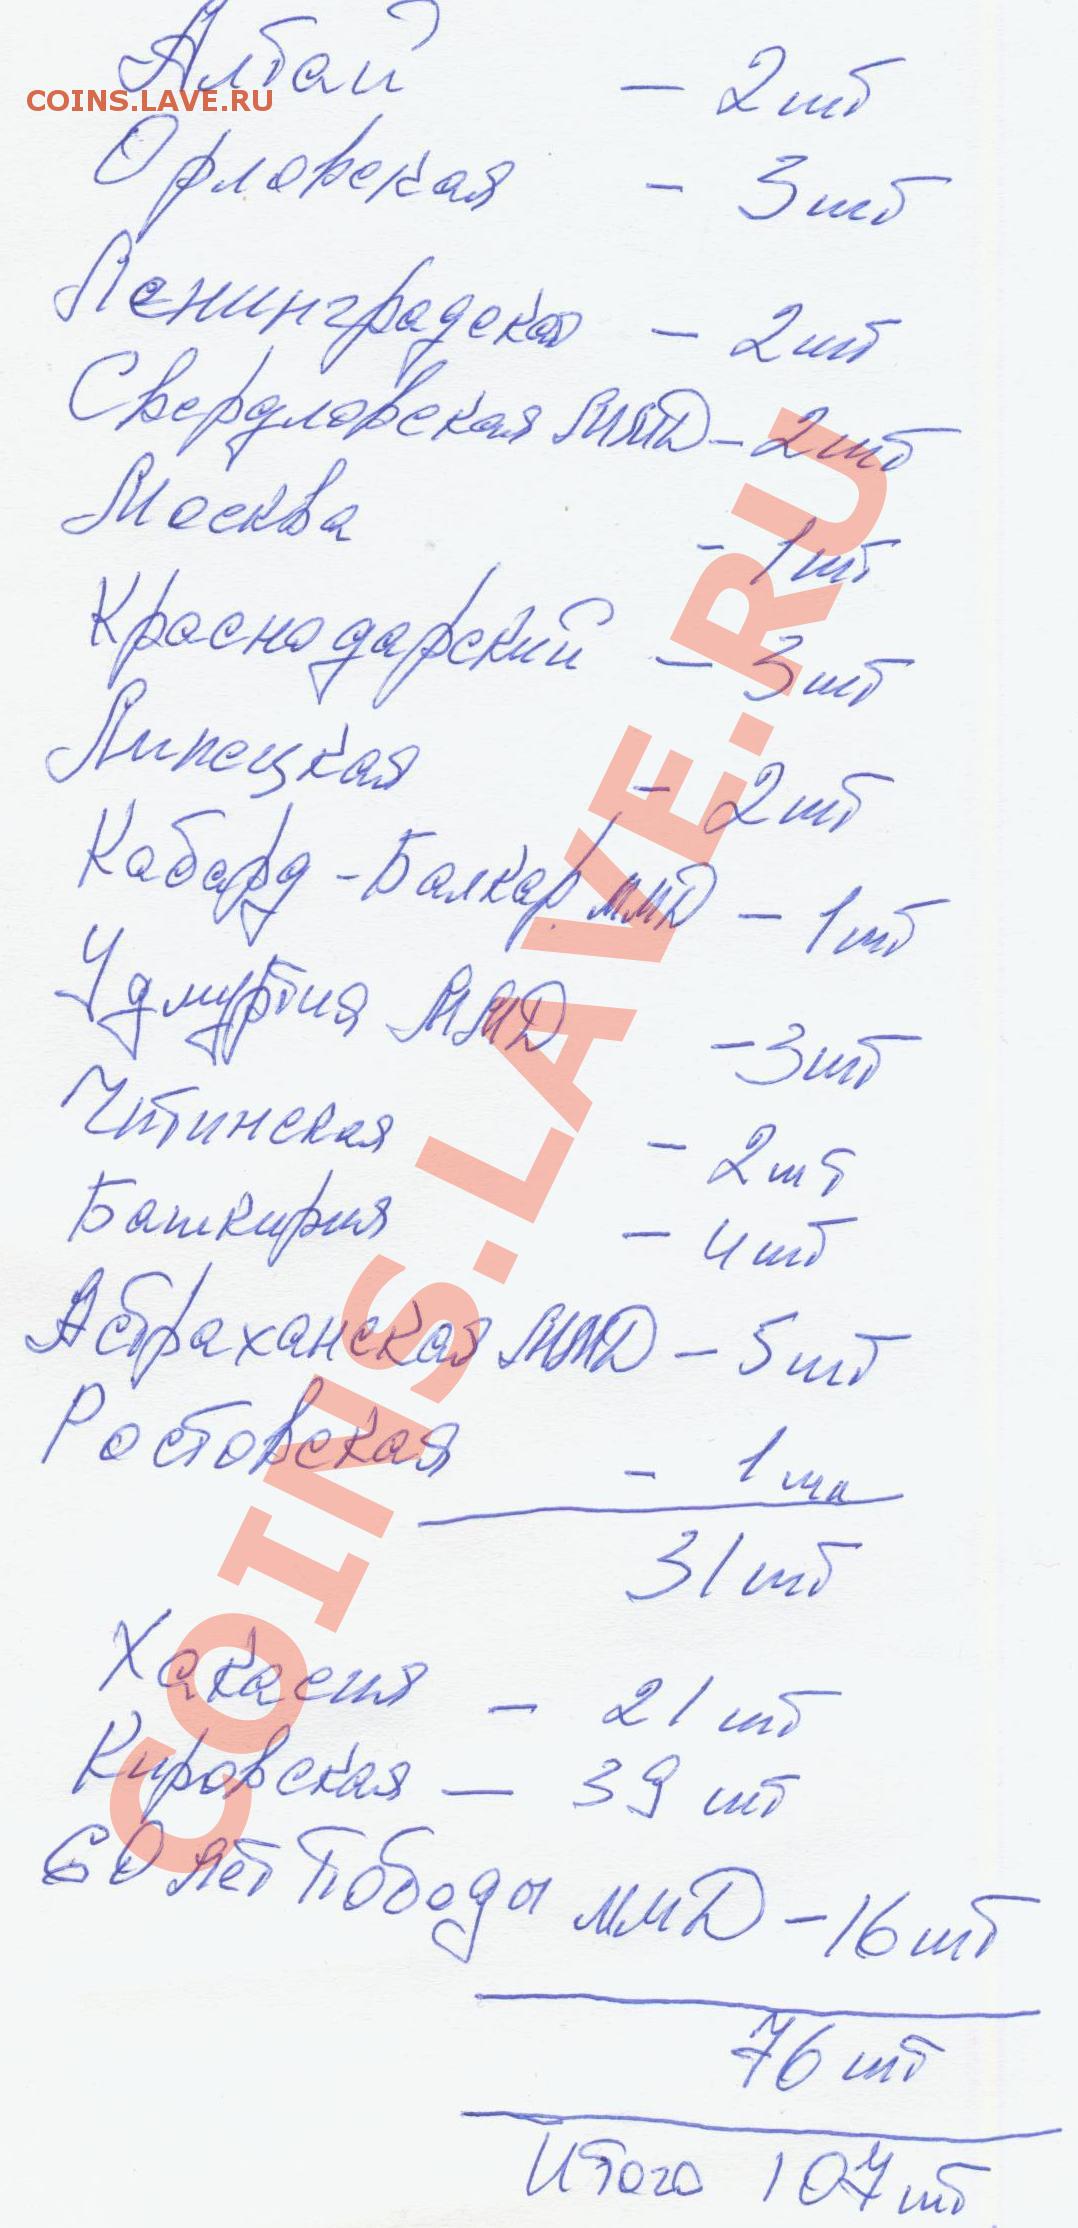 Алтай - 2 шт
COINS.LAVE.RU
Орловская - 3 шт
Ленинградская - 2 шт
Свердловская ММД - 2 шт
Москва - 1 шт
Краснодарский - 3 шт
Липецкая - 2 шт
Кабард-Балкар. ММД - 1 шт
Удмуртия ММД - 3 шт
Читинская - 2 шт
Башкирия - 4 шт
Астраханская ММД - 5 шт
Ростовская - 1 шт
31 шт
Хакасия - 21 шт
Кировская - 39 шт
60 лет Победы ММД - 16 шт
76 шт
Итого 107 шт
COINS.LAVE.RU